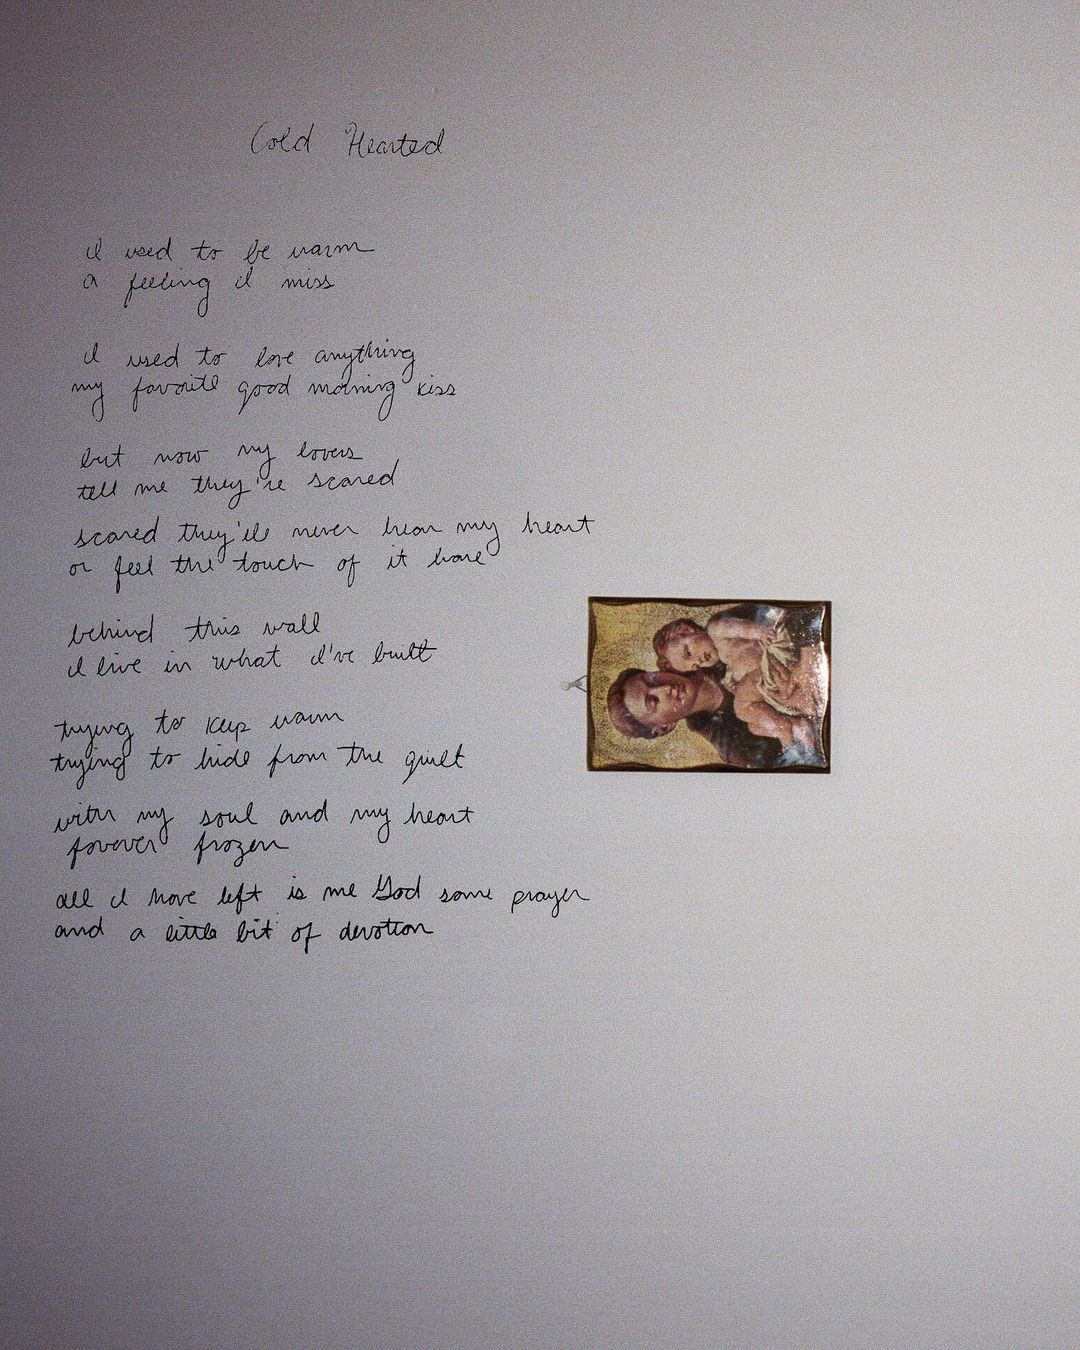 Cold Hearted
I used to be warm
a feeling I miss
I used to love anything
my favorite good morning kiss
but now my lovers
tell me they're scared
scared they'll never hear my heart
or feel the touch of it bare
behind this wall
I live in what I've built
trying to keep warm
trying to hide from the guilt
with my soul and my heart
forever frozen
all I have left is me God some prayer
and a little bit of devotion